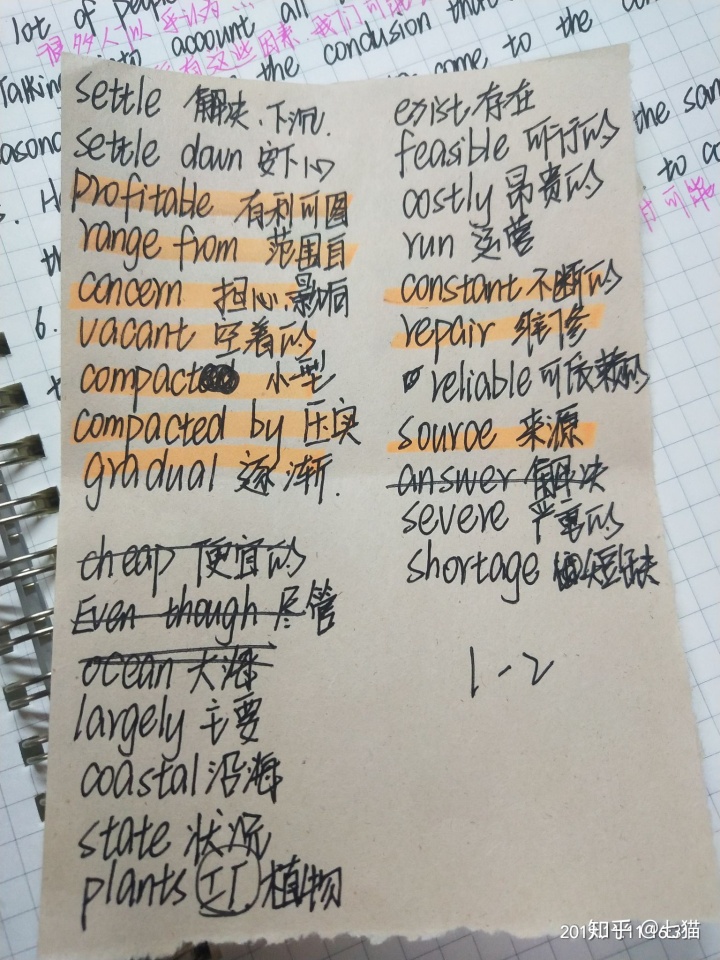 lot of people
很多人以
account all
我们可能
Talking
the conclusion that
come to the
the sam
6.
settle 解决.下沉.
settle down 安下心
profitable 有利可图
range from 范围自
concern 担心.影响
vacant 空着的
compact 小型
compacted by 压实
gradual 逐渐.
cheap 便宜的
Even though 尽管
ocean 大海
largely 主要
coastal 沿海
state 状况
plants 工厂 植物
exist 存在
feasible 可行的
costly 昂贵的
run 运营
constant 不断的
repair 维修
reliable 可依赖的
source 来源
answer 解决
severe 严重的
shortage 短缺
1-2
知乎 @七猫